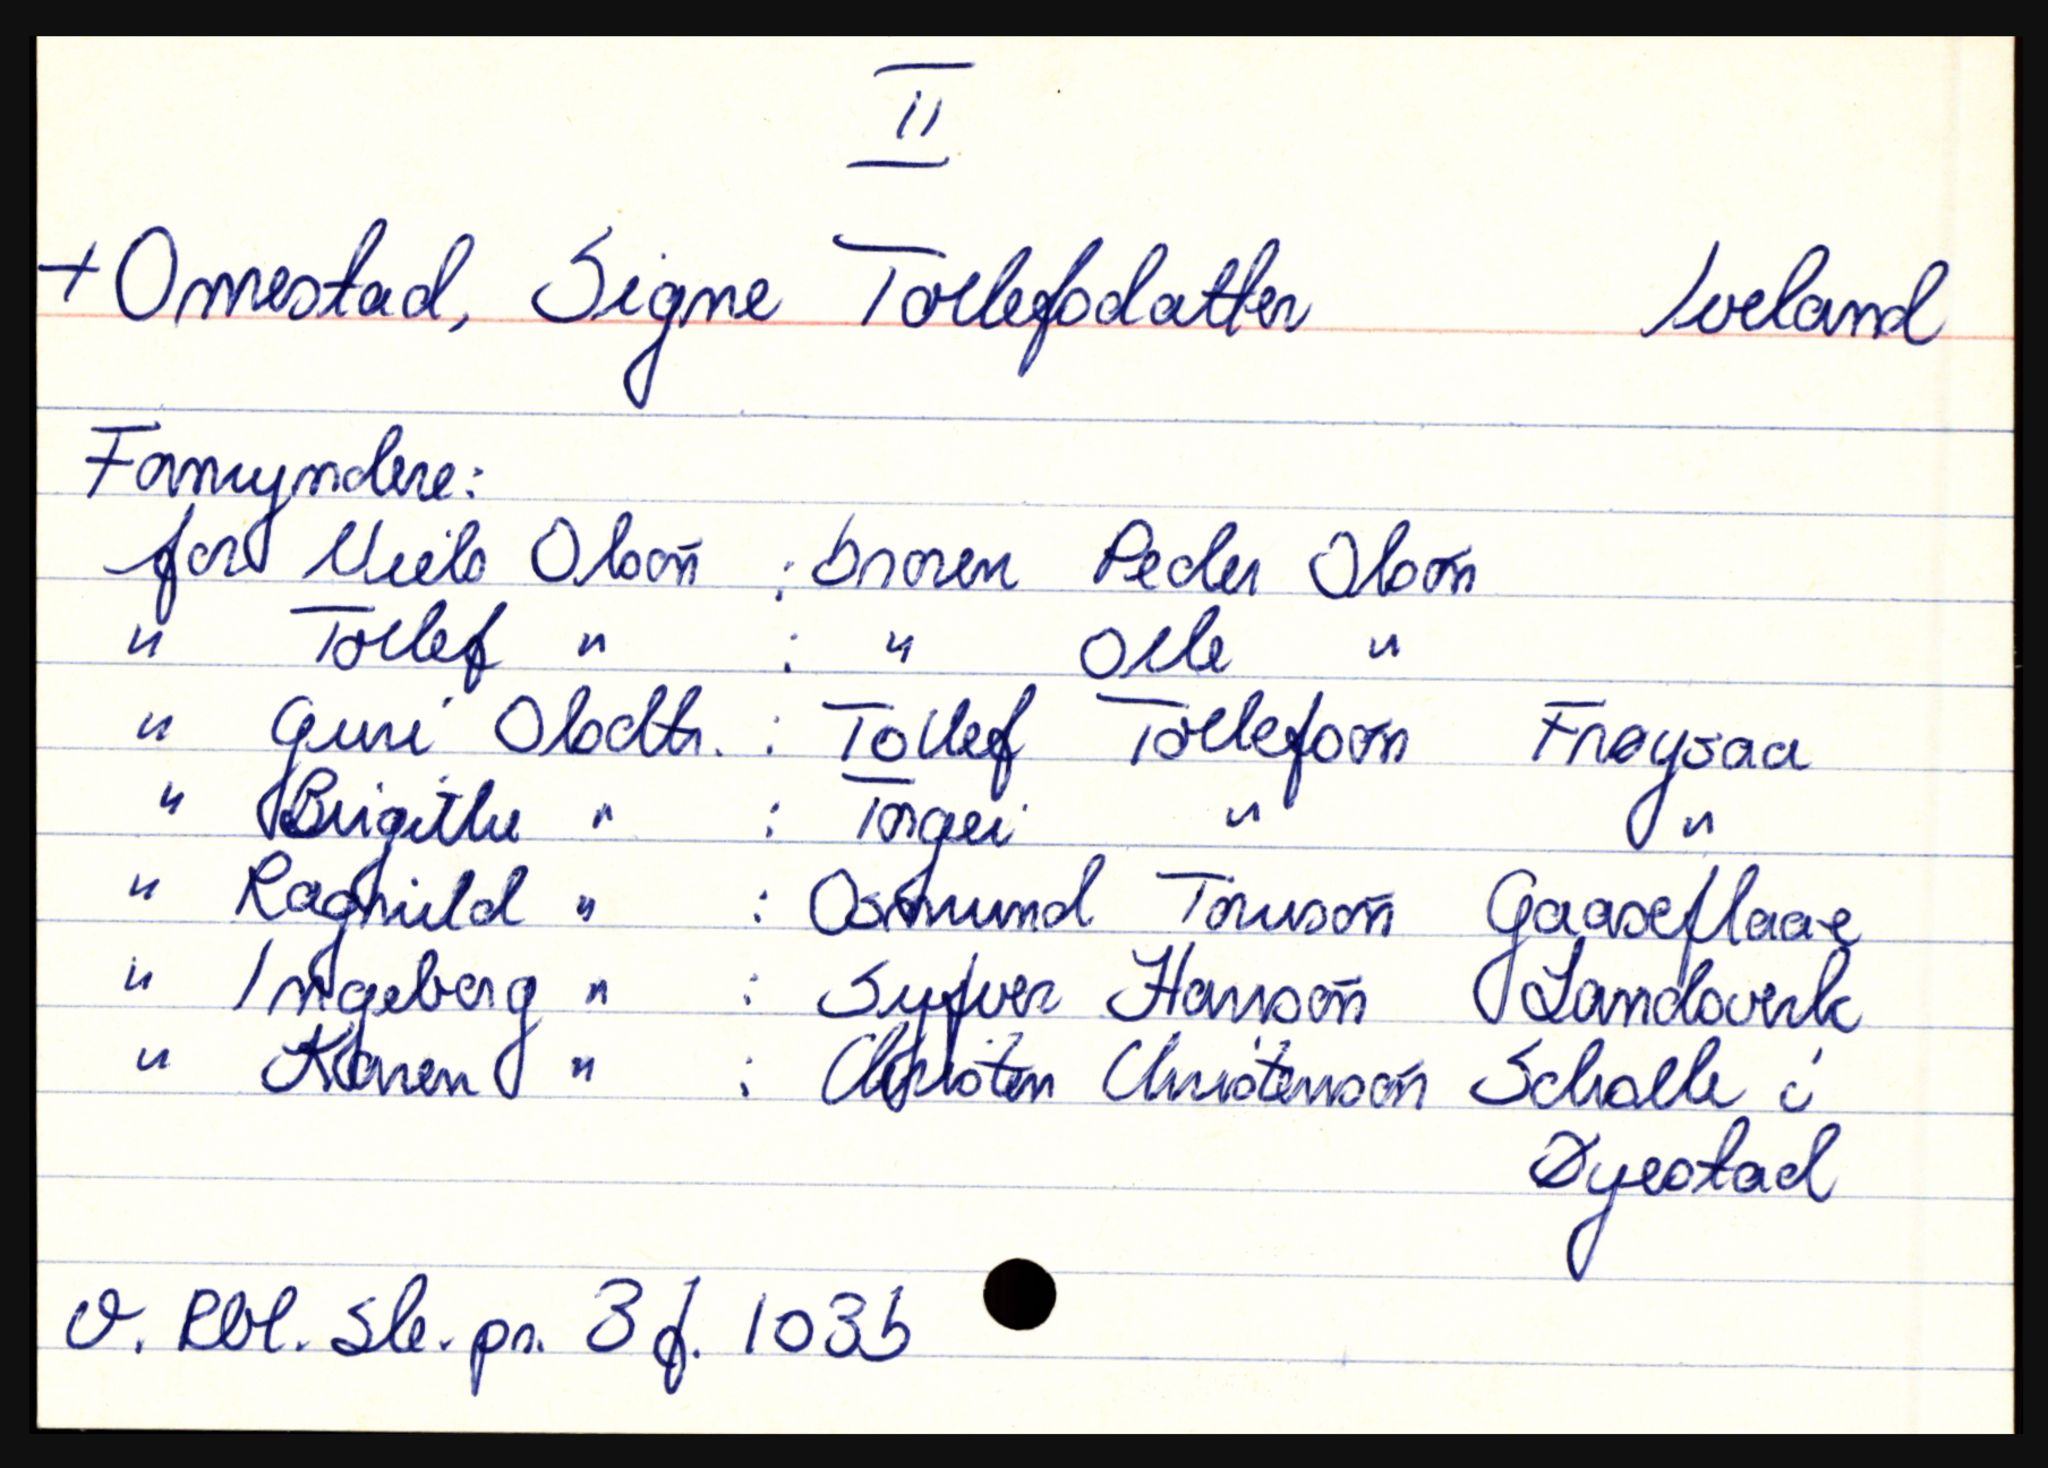 II
+ Omestad, Signe Tollefsdatter Iveland
Formyndere:
for Niels Olsøn : broren Peder Olsøn
" Tollef " : " Olle "
" Guri Olsdtr. : Tollef Tollefsøn Frøysaa
" Birgitte " : Torgei " "
" Ragnild " : Osmund Torusøn Gaaseflaae
" Ingeborg " : Syfver Hansøn Landsverk
" Karen " : Christen Christensøn Scholle i
Øyestad
V. Rbl. Sk. pr. 3 f. 103b